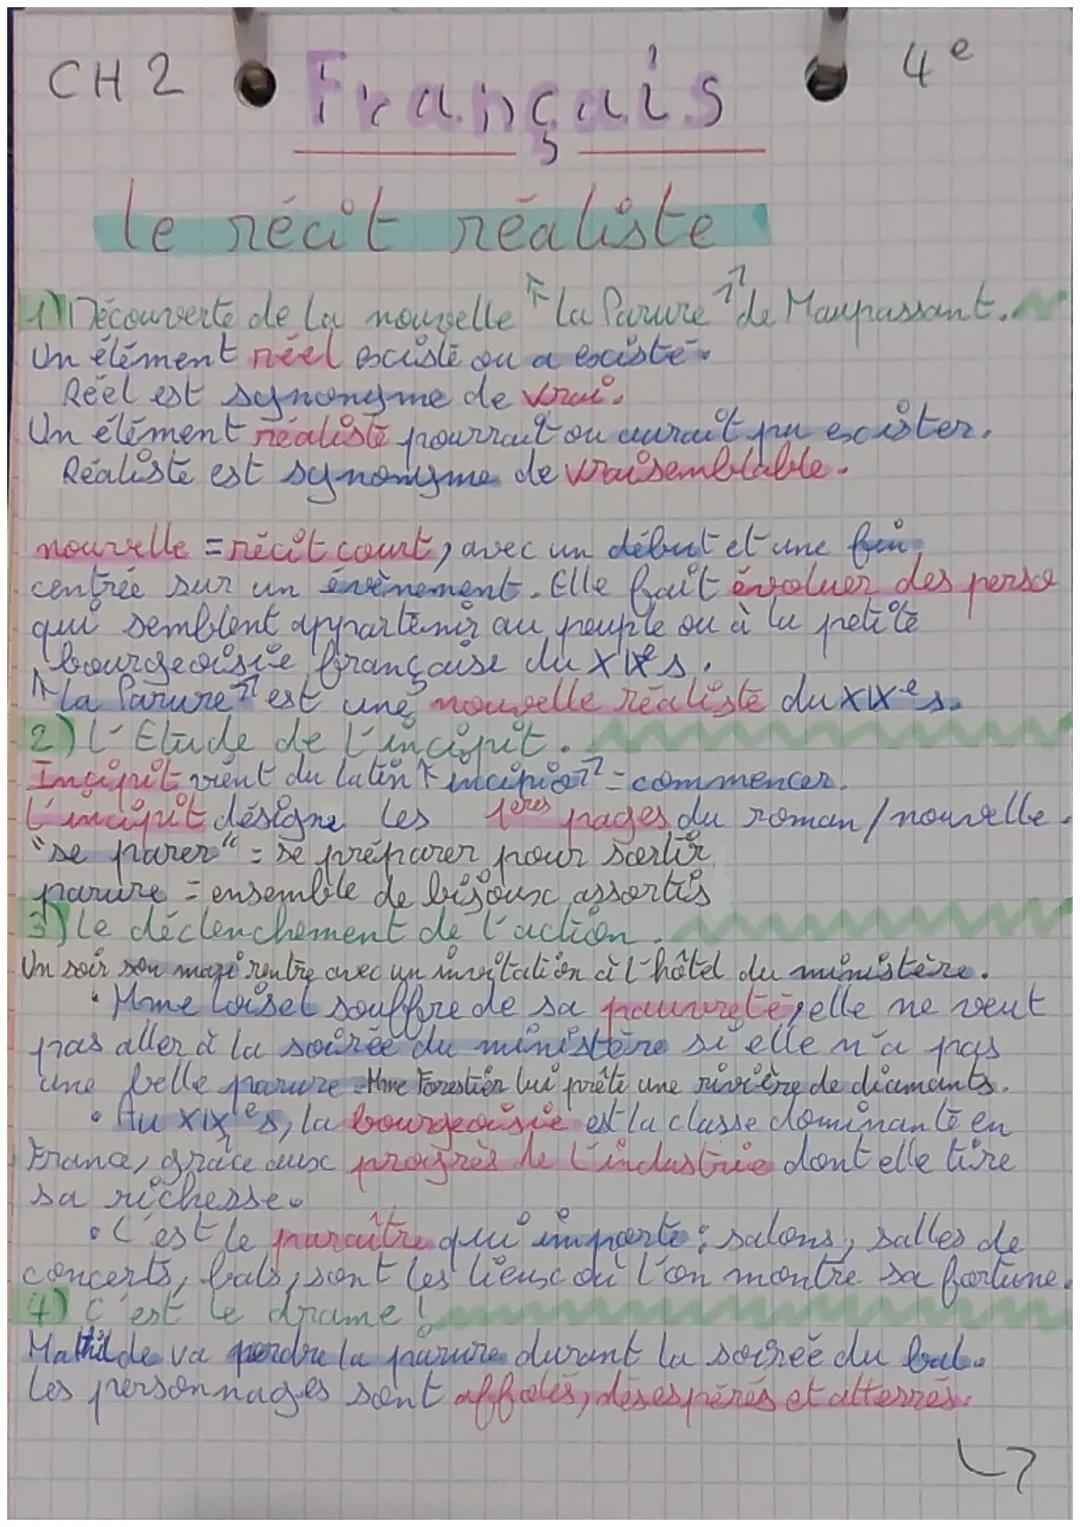 CH 2 Français 4e
le récit réaliste
1) Découverte de la nouvelle "la Parure" de Maupassant.
Un élément réel existe ou a existé.
Réel est synonyme de vrai.
Un élément réaliste pourrait ou aurait pu exister.
Réaliste est synonyme de vraisemblable.
nouvelle = récit court, avec un début et une fin,
centrée sur un évènement. Elle fait évoluer des perso
qui semblent appartenir au peuple ou à la petite
bourgeoisie française du XIXe s.
"La Parure" est une nouvelle réaliste du XIXe s.
2) L'Etude de l'incipit.
Incipit vient du latin "incipio" = commencer.
L'incipit désigne les 1ères pages du roman/nouvelle.
"se parer" = se préparer pour sortir
parure = ensemble de bijoux assortis
3) Le déclenchement de l'action.
Un soir son mari rentre avec un invitation à l'hôtel du ministère.
• Mme Loisel souffre de sa pauvreté, elle ne veut
pas aller à la soirée du ministère si elle n'a pas
une belle parure. Mme Forestier lui prête une rivière de diamants.
• Au XIXe s, la bourgeoisie est la classe dominante en
France, grâce aux progrès de l'industrie dont elle tire
sa richesse.
• C'est le paraître qui importe : salons, salles de
concerts, bals, sont les lieux où l'on montre sa fortune.
4) C'est le drame !
Mathilde va perdre la parure durant la soirée du bal.
Les personnages sont affolés, désespérés et atterrés.